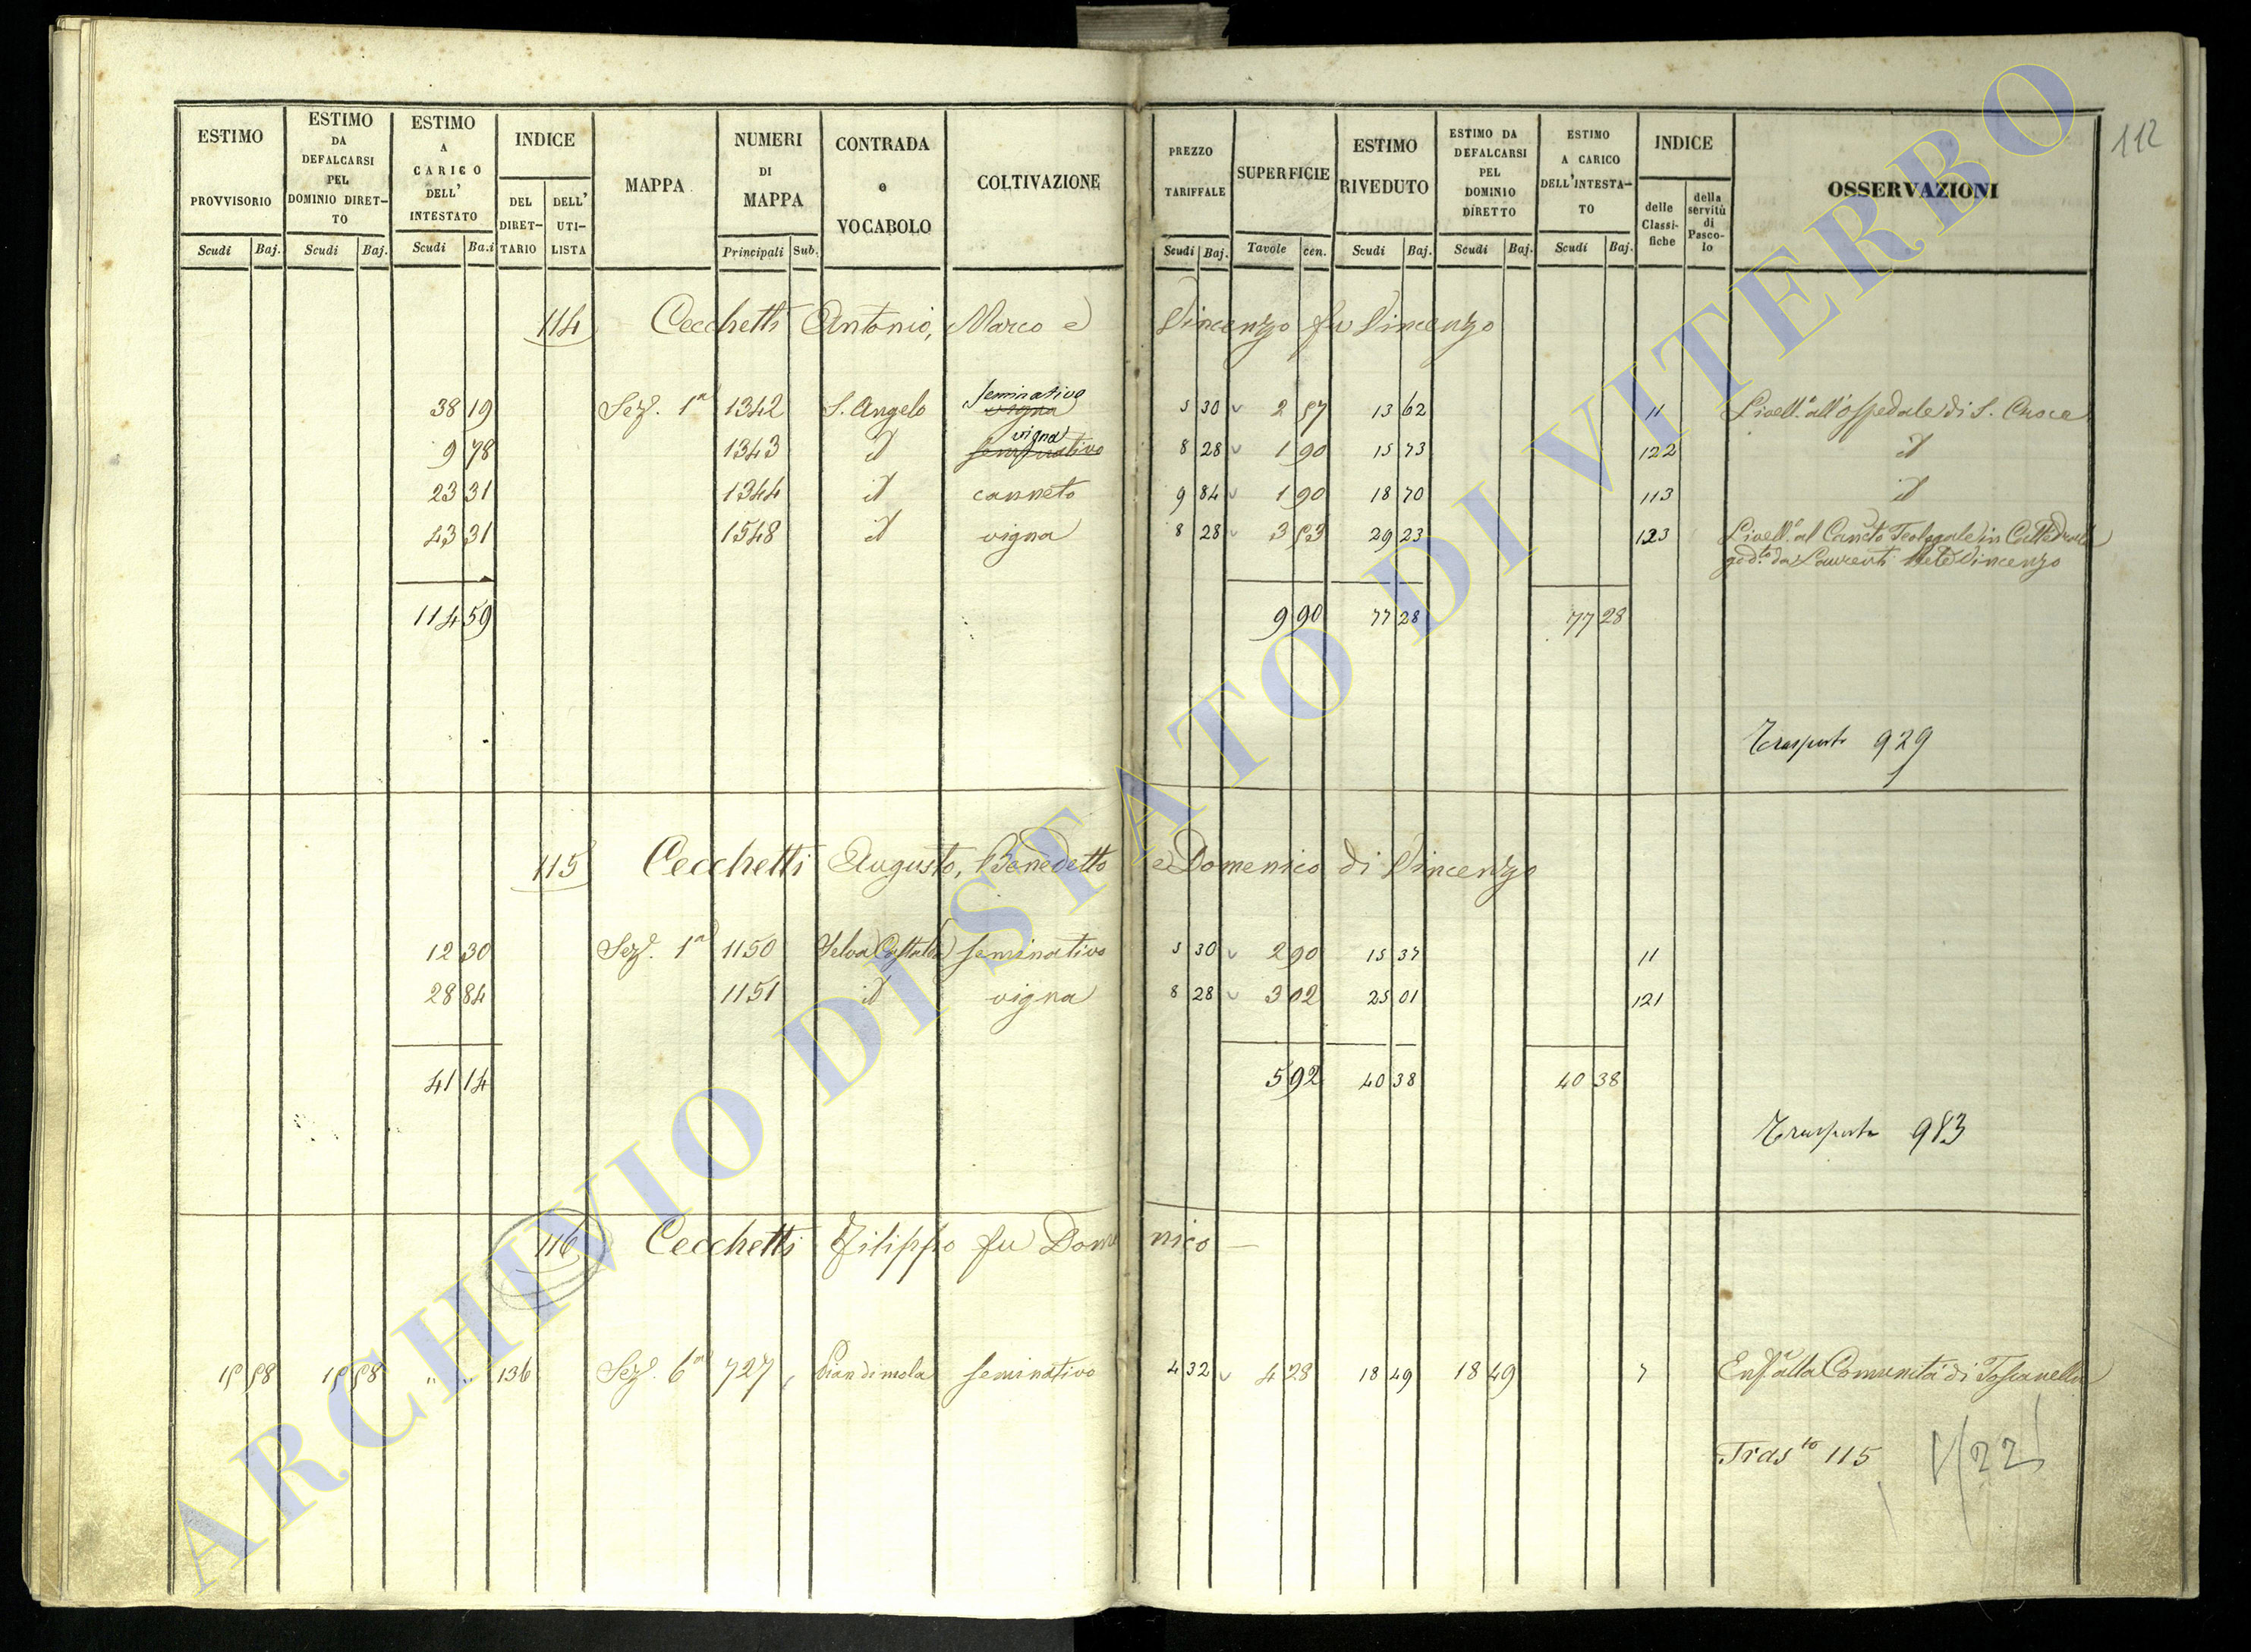 112
ESTIMO PROVVISORIO Scudi Baj.
ESTIMO DA DEFALCARSI PEL DOMINIO DIRET-TO Scudi Baj.
ESTIMO A CARICO DELL' INTESTATO Scudi Ba.i
INDICE DEL DIRET-TARIO DELL' UTI-LISTA
MAPPA
NUMERI DI MAPPA Principali Sub.
CONTRADA e VOCABOLO
COLTIVAZIONE
PREZZO TARIFFALE Scudi Baj.
SUPERFICIE Tavole cen.
ESTIMO RIVEDUTO Scudi Baj.
ESTIMO DA DEFALCARSI PEL DOMINIO DIRETTO Scudi Baj.
ESTIMO A CARICO DELL'INTESTA-TO Scudi Baj.
INDICE delle Classi-fiche della servitù di Pasco-lo
OSSERVAZIONI
114 Cecchetti Antonio, Marco e Vincenzo fu Vincenzo
38 19 Sez.e 1a 1342 S. Angelo vigna seminativo 5 30 2 57 13 62 11 Livell.o all'ospedale di S. Croce
9 78 1343 id seminativo vigna 8 28 1 90 15 73 122 id
23 31 1344 id canneto 9 84 1 90 18 70 113 id
43 31 1548 id vigna 8 28 3 53 29 23 123 Livell.o al Can.to Teologale in Cattedrale
god.to da Laurenti Vincenzo
114 59 9 90 77 28 77 28
Trasporto 929
115 Cecchetti Augusto, Benedetto e Domenico di Vincenzo
12 30 Sez.e 1a 1150 Selva seminativo 5 30 2 90 15 37 11
28 84 1151 id vigna 8 28 3 02 25 01 121
41 14 5 92 40 38 40 38
Trasporto 983
116 Cecchetti Filippo fu Domenico
15 58 15 58 " " 136 Sez.e 6a 727 Pian di mola seminativo 4 32 4 28 18 49 18 49 7 Enf.a alla Comunità di Toscanella
Tras.to 115
ARCHIVIO DI STATO DI VITERBO